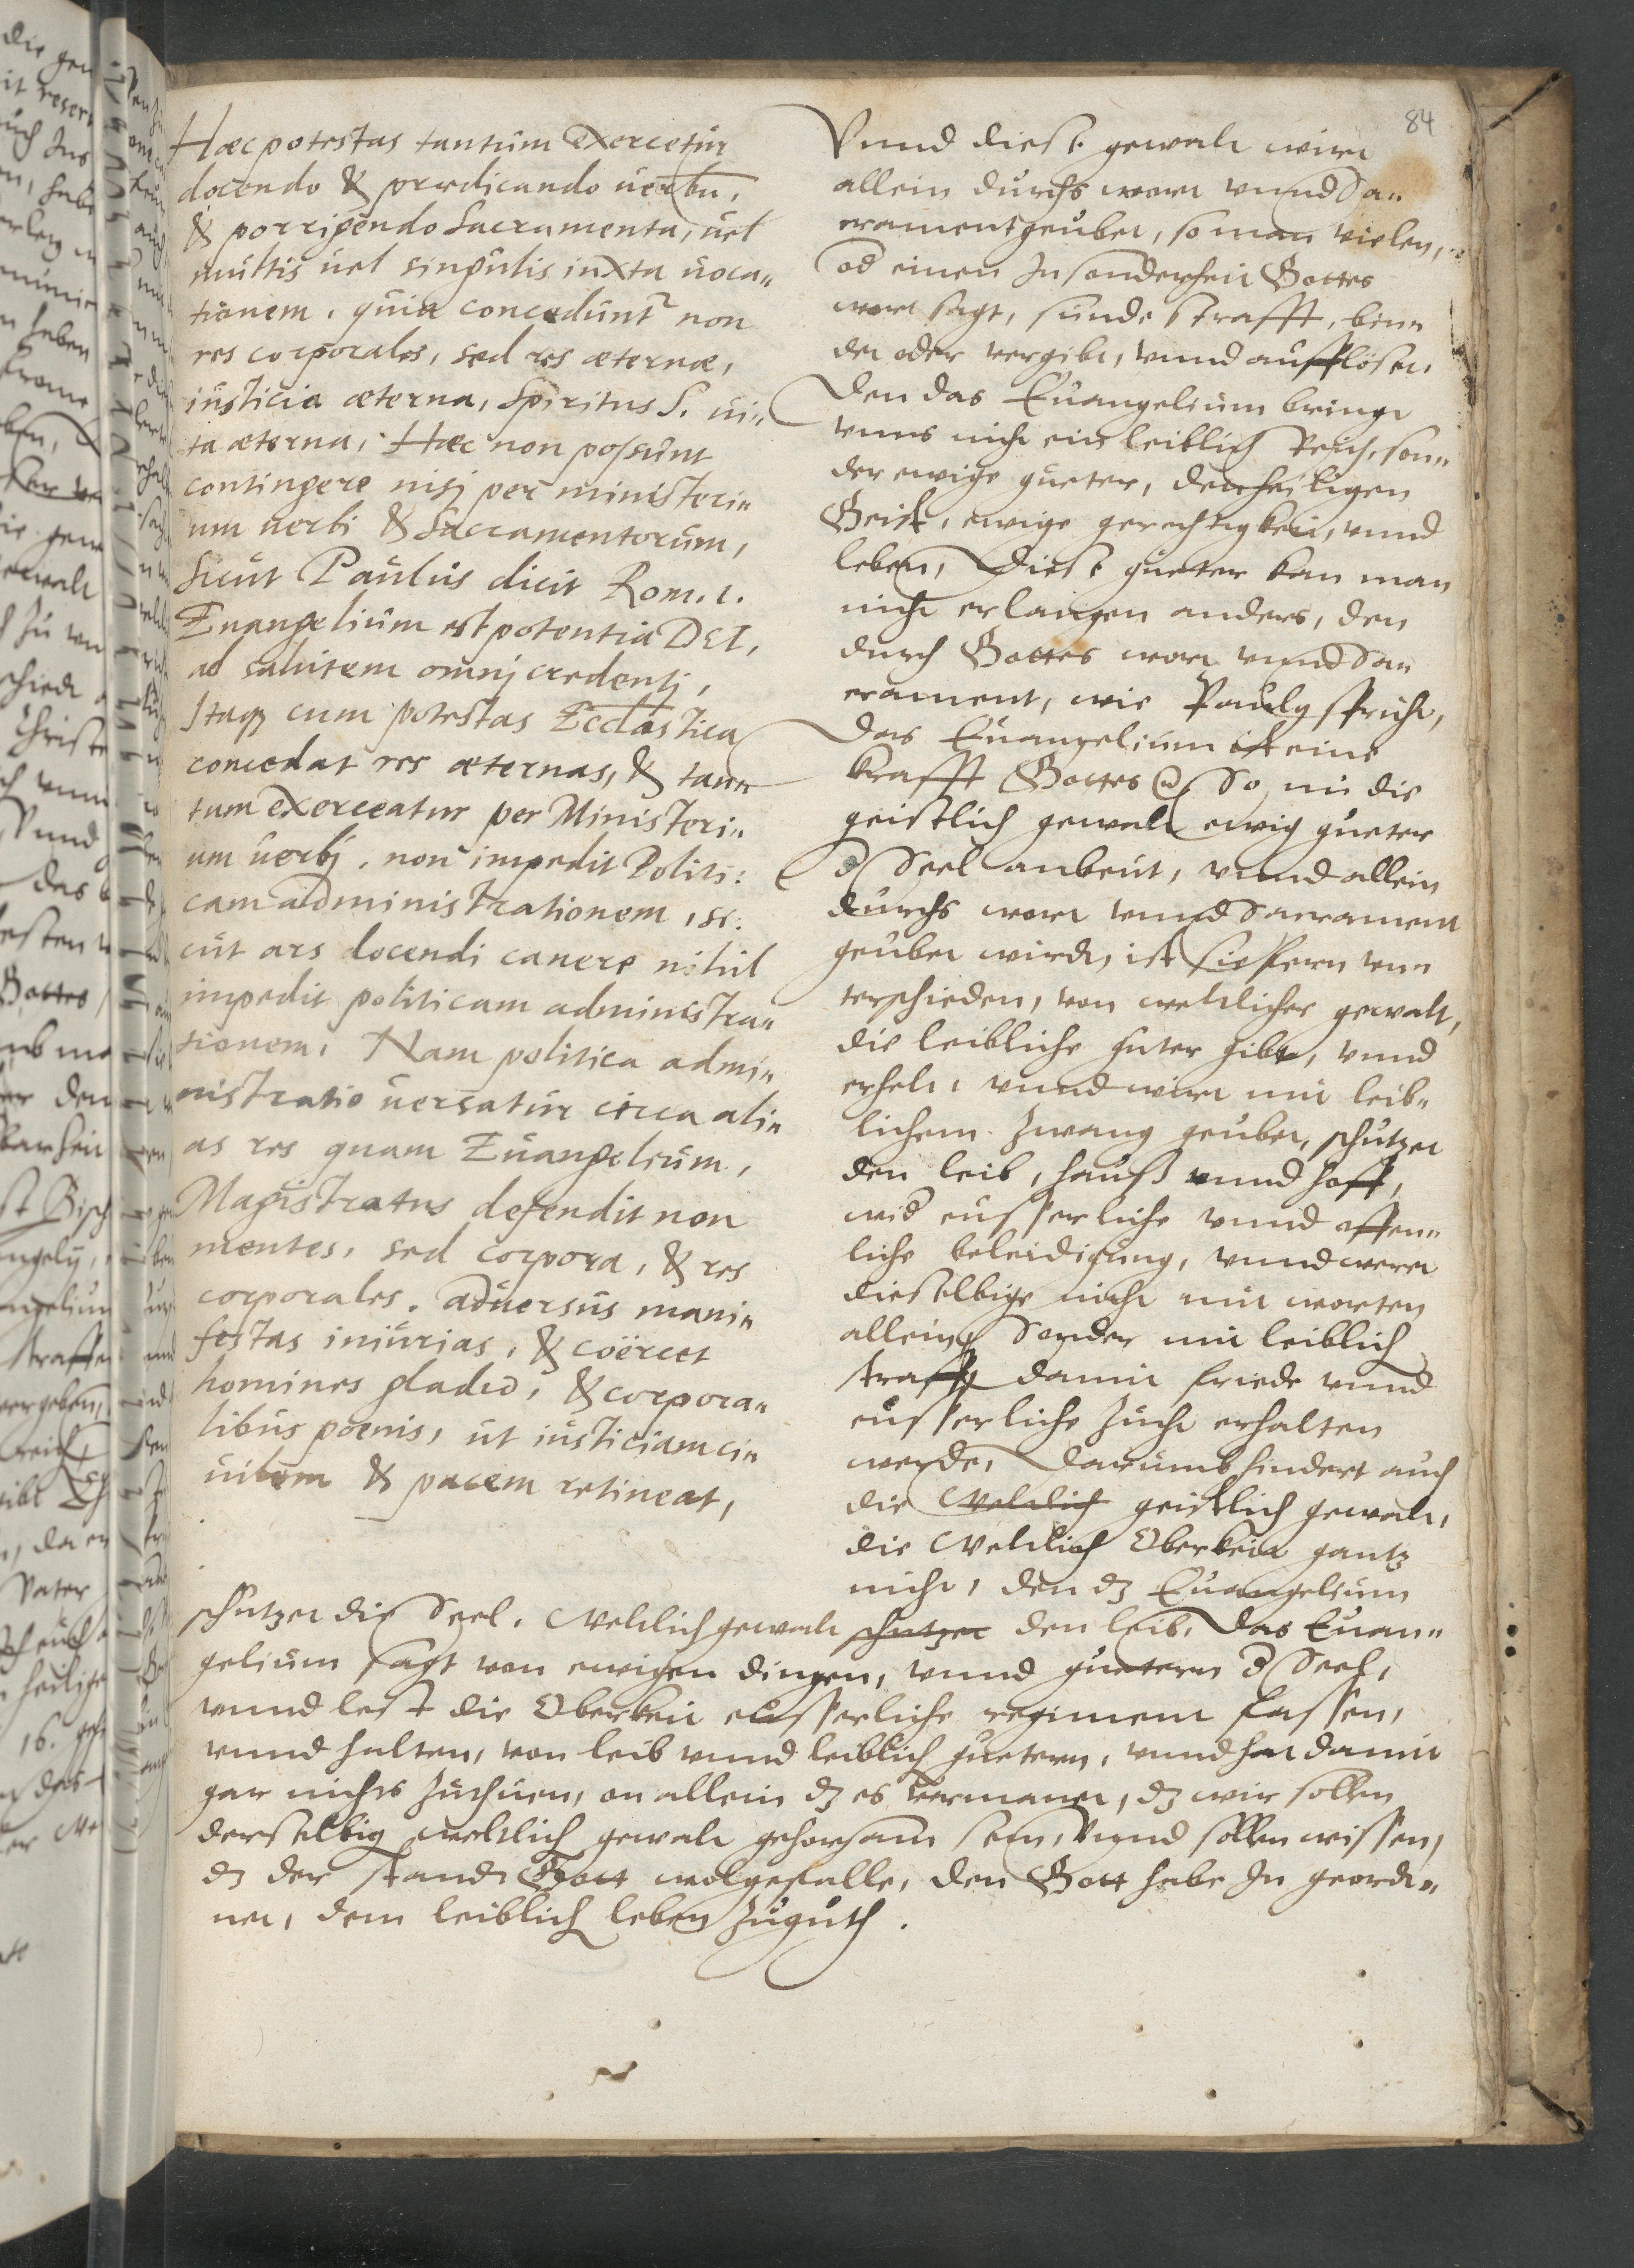 84
Hæc potestas tantum exercetur
docendo & prædicando uerbū,
& porrigendo Sacramenta, uel
multis uel singulis iuxta uoca„
tionem. quia concedunt~ non
res corporales, sed res æternæ,
iusticia æterna, Spiritus S. ui„
ta æterna, Hæc non possunt
contingere nisj per ministeri„
um uerbi & Sacramentorum,
Sicut Paulus dicit Rom. 1.
Euangelium est potentia DEI,
ad salutem omnj credentj,
Itaq cum potestas Eccliastica
concedat res æternas, & tan„
tum exerceatur per Ministeri„
um uerbj. non impedit Politi:
cam administrationem, si:
cut ars docendi canere nihil
impedit politicam administra„
tionem. Nam politica admi„
nistratio uersatur circa ali„
as res quam Euangelium,
Magistratus defendit non
mentes, sed corpora, & res
corporales. aduersus mani„
festas iniurias, & coërcet
homines gladio, & corpora„
libus poenis, ut iusticiam ci„
uilem & pacem retineat,
Vnnd diese gewalt wirt
allein durchs wort vnnd Sa„
crament geubet, so man vielen,
od einen Insonderheit Gottes
wort sagt, sunde strafft, bin„
det oder vergibt, vnnd aufflöset,
Den das Euangelium bringt
vnns nicht ein leiblich Reich, son„
der ewige gueter, den heiligen
Geist, ewige gerechtigkeit, vnnd
leben, Diese gueter kan man
nicht erlangen anders, den
durch Gottes wort vnnd Sa„
crament, wie Paulg spricht,
Das Euangelium ist eine
krafft Gottes So nu die
geistlich gewalt ewig gueter
d Seel anbeut, vnnd allein
durchs wort vnnd Sacrament
geubet wirdt, ist sie fern vn„
terschieden, von weltlicher gewalt,
die leibliche guter gibt, vnnd
erhelt, vnnd wirt mit leib„
lichem zwang geubet, schutzet
den leib, hauß vnnd hoff,
wid eusserliche vnnd offen„
liche beleidigung, vnnd weret
dieselbige nicht mit worten
allein Sonder mit leiblich
straff damit friede vnnd
eusserliche zucht erhalten
werde, Darumb hindert auch
die Weltlich geistlich gewalt,
die Weltlich Oberkeit gantz
nicht, den dz Euangelium
schutzet die Seel. Weltlich gewalt schutzet den leib. Das Euan„
gelium sagt von ewigen dingen, vnnd guetern d Seel,
vnnd lest die Oberkeit eusserliche regiment fassen,
vnnd halten, von leib vnnd leiblich guetern, vnnd hat damit
gar nichts zuthuen, on allein dz es vermanet, dz wir sollen
derselbig weltlich gewalt gehorsam sein, Vnnd sollen wissen,
dz der stand Gott wolgefalle, den Gott habe In geord„
net, dem leiblich leben zuguth.